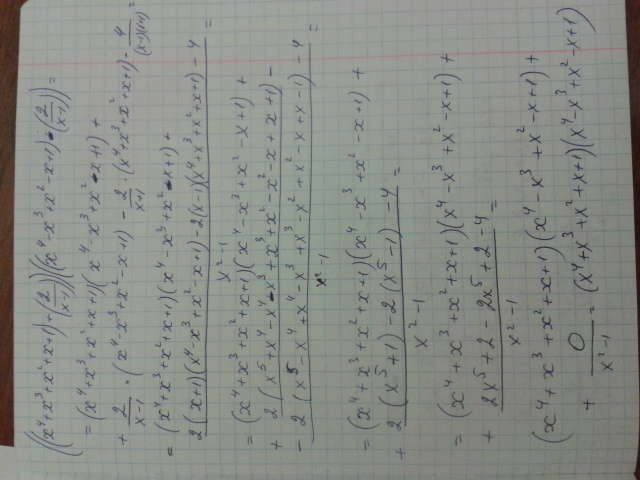 ((x⁴+x³+x²+x+1)+(2/(x-1)))((x⁴-x³+x²-x+1)-(2/(x-1)))=
=(x⁴+x³+x²+x+1)(x⁴-x³+x²-x+1)+
+2/(x-1)·(x⁴-x³+x²-x+1)-2/(x+1)·(x⁴+x³+x²+x+1)-4/((x-1)(x+1))=
=(x⁴+x³+x²+x+1)(x⁴-x³+x²-x+1)+
2(x+1)(x⁴-x³+x²-x+1)-2(x-1)(x⁴+x³+x²+x+1)-4=
x²-1
=(x⁴+x³+x²+x+1)(x⁴-x³+x²-x+1)+
+2(x⁵+x⁴-x⁴-x³+x³+x²-x²-x+x+1)-
-2(x⁵-x⁴+x⁴-x³+x³-x²+x²-x+x-1)-4=
x²-1
=(x⁴+x³+x²+x+1)(x⁴-x³+x²-x+1)+
+2(x⁵+1)-2(x⁵-1)-4=
x²-1
=(x⁴+x³+x²+x+1)(x⁴-x³+x²-x+1)+
+2x⁵+2-2x⁵+2-4=
x²-1
(x⁴+x³+x²+x+1)(x⁴-x³+x²-x+1)+
+0/(x²-1)=(x⁴+x³+x²+x+1)(x⁴-x³+x²-x+1)